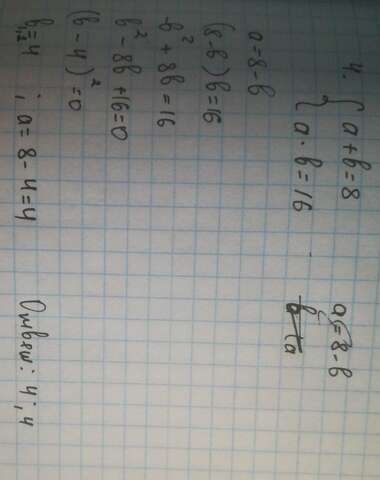 4. { a + b = 8
a · b = 16
a = 8 - b
a = 8 - b
(8 - b) b = 16
-b² + 8b = 16
b² - 8b + 16 = 0
(b - 4)² = 0
b₁,₂ = 4 ; a = 8 - 4 = 4
Ответ: 4; 4